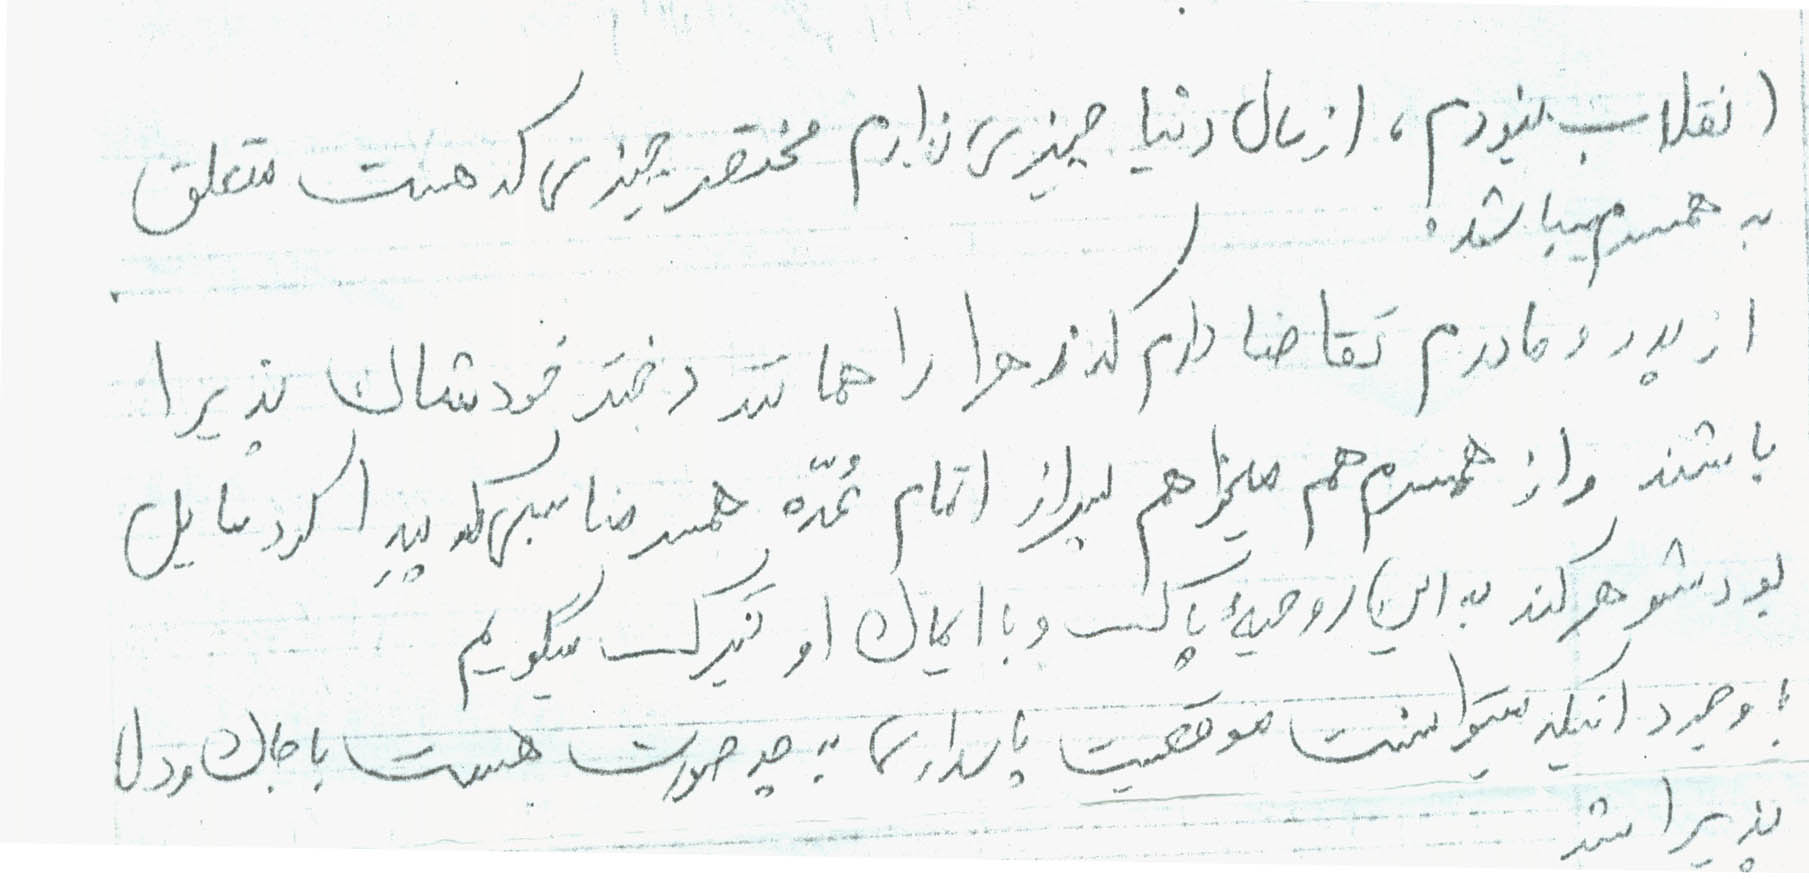 انقلاب نبودم، از مال دنیا چیزی ندارم مختصر چیزی که هست متعلق
به همسرم میباشد.
از پدر و مادرم تقاضا دارم که زهرا را همانند دختر خودشان پذیرا
باشند و از همسرم هم میخواهم بعد از اتمام عُدّه همسر مناسبی که پیدا کرد مایل
بود شوهر کند به این روحیهٔ پاک و با ایمان او تبریک میگویم
با وجود اینکه میتوانست موقعیت پاسداری به چه صورت هست با جان ودل
پذیرا شد